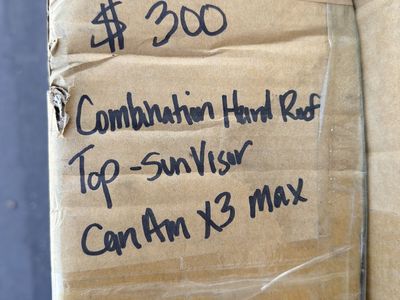 $ 300
Combination Hard Roof
Top - sun Visor
Can Am X3 max